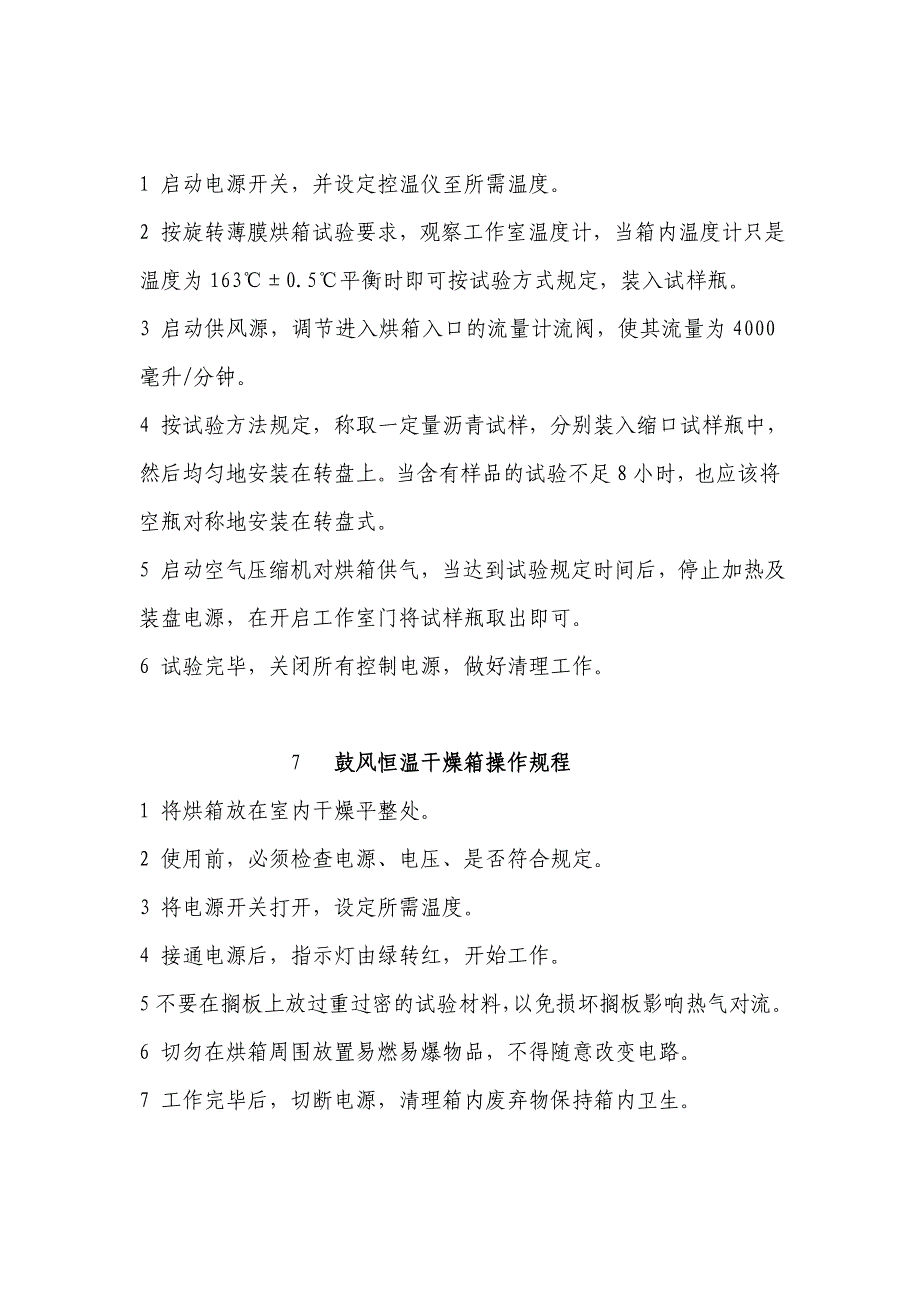 1 启动电源开关，并设定控温仪至所需温度。
2 按旋转薄膜烘箱试验要求，观察工作室温度计，当箱内温度计只是
温度为 163℃±0.5℃平衡时即可按试验方式规定，装入试样瓶。
3 启动供风源，调节进入烘箱入口的流量计流阀，使其流量为 4000
毫升/分钟。
4 按试验方法规定，称取一定量沥青试样，分别装入缩口试样瓶中，
然后均匀地安装在转盘上。当含有样品的试验不足 8 小时，也应该将
空瓶对称地安装在转盘式。
5 启动空气压缩机对烘箱供气，当达到试验规定时间后，停止加热及
装盘电源，在开启工作室门将试样瓶取出即可。
6 试验完毕，关闭所有控制电源，做好清理工作。
7 鼓风恒温干燥箱操作规程
1 将烘箱放在室内干燥平整处。
2 使用前，必须检查电源、电压、是否符合规定。
3 将电源开关打开，设定所需温度。
4 接通电源后，指示灯由绿转红，开始工作。
5不要在搁板上放过重过密的试验材料，以免损坏搁板影响热气对流。
6 切勿在烘箱周围放置易燃易爆物品，不得随意改变电路。
7 工作完毕后，切断电源，清理箱内废弃物保持箱内卫生。